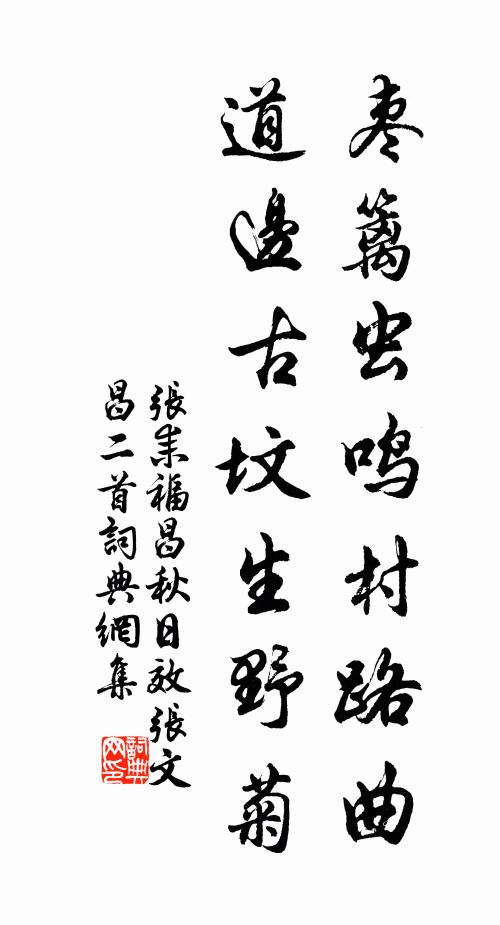 枣篱虫鸣村路曲
道邊古坟生野菊
張耒福昌秋日效張文
昌二首詞典網集
詞典网印